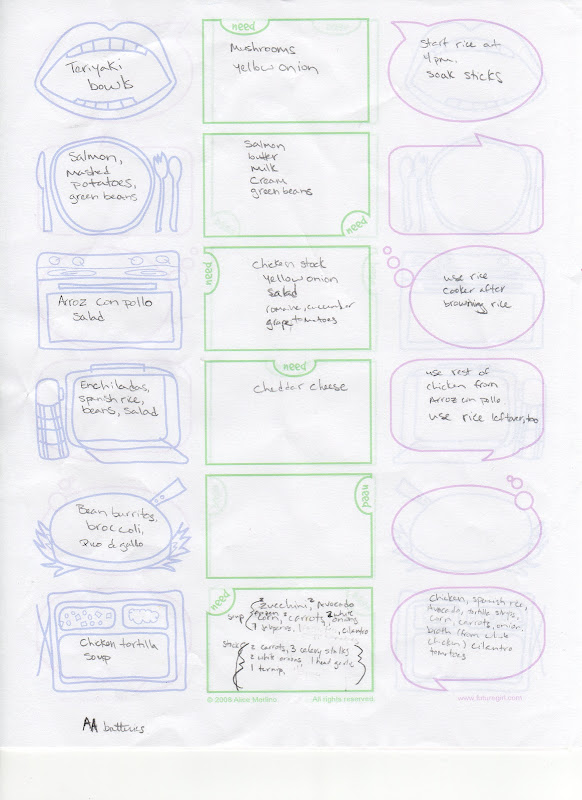 Teriyaki
bowls
need
Mushrooms
yellow onion
start rice at
4 pm.
soak sticks
Salmon,
mashed
potatoes,
green beans
Salmon
butter
Milk
Cream
green beans
need
Arroz con pollo
Salad
need
Chicken stock
yellow onion
Salad
romaine, cucumber
grape tomatoes
use rice
cooker after
browning rice
Enchiladas,
spanish rice,
beans, salad
need
Cheddar cheese
use rest of
chicken from
Arroz con pollo
use rice leftover, too
Bean burritos,
broccoli,
Pico de gallo
need
Chicken tortilla
Soup
need
2 zucchini, 2 Avocado
Soup
corn, carrots, 2 white onions
cilantro
2 carrots, 3 celery stalks
2 white onions, 1 head garlic
1 turnip,
Chicken, spanish rice,
Avocado, tortilla strips,
corn, carrots, onion,
broth (from whole
chicken) cilantro
tomatoes
© 2008 Alice Merlino. All rights reserved.
www.futuregirl.com
AA batteries